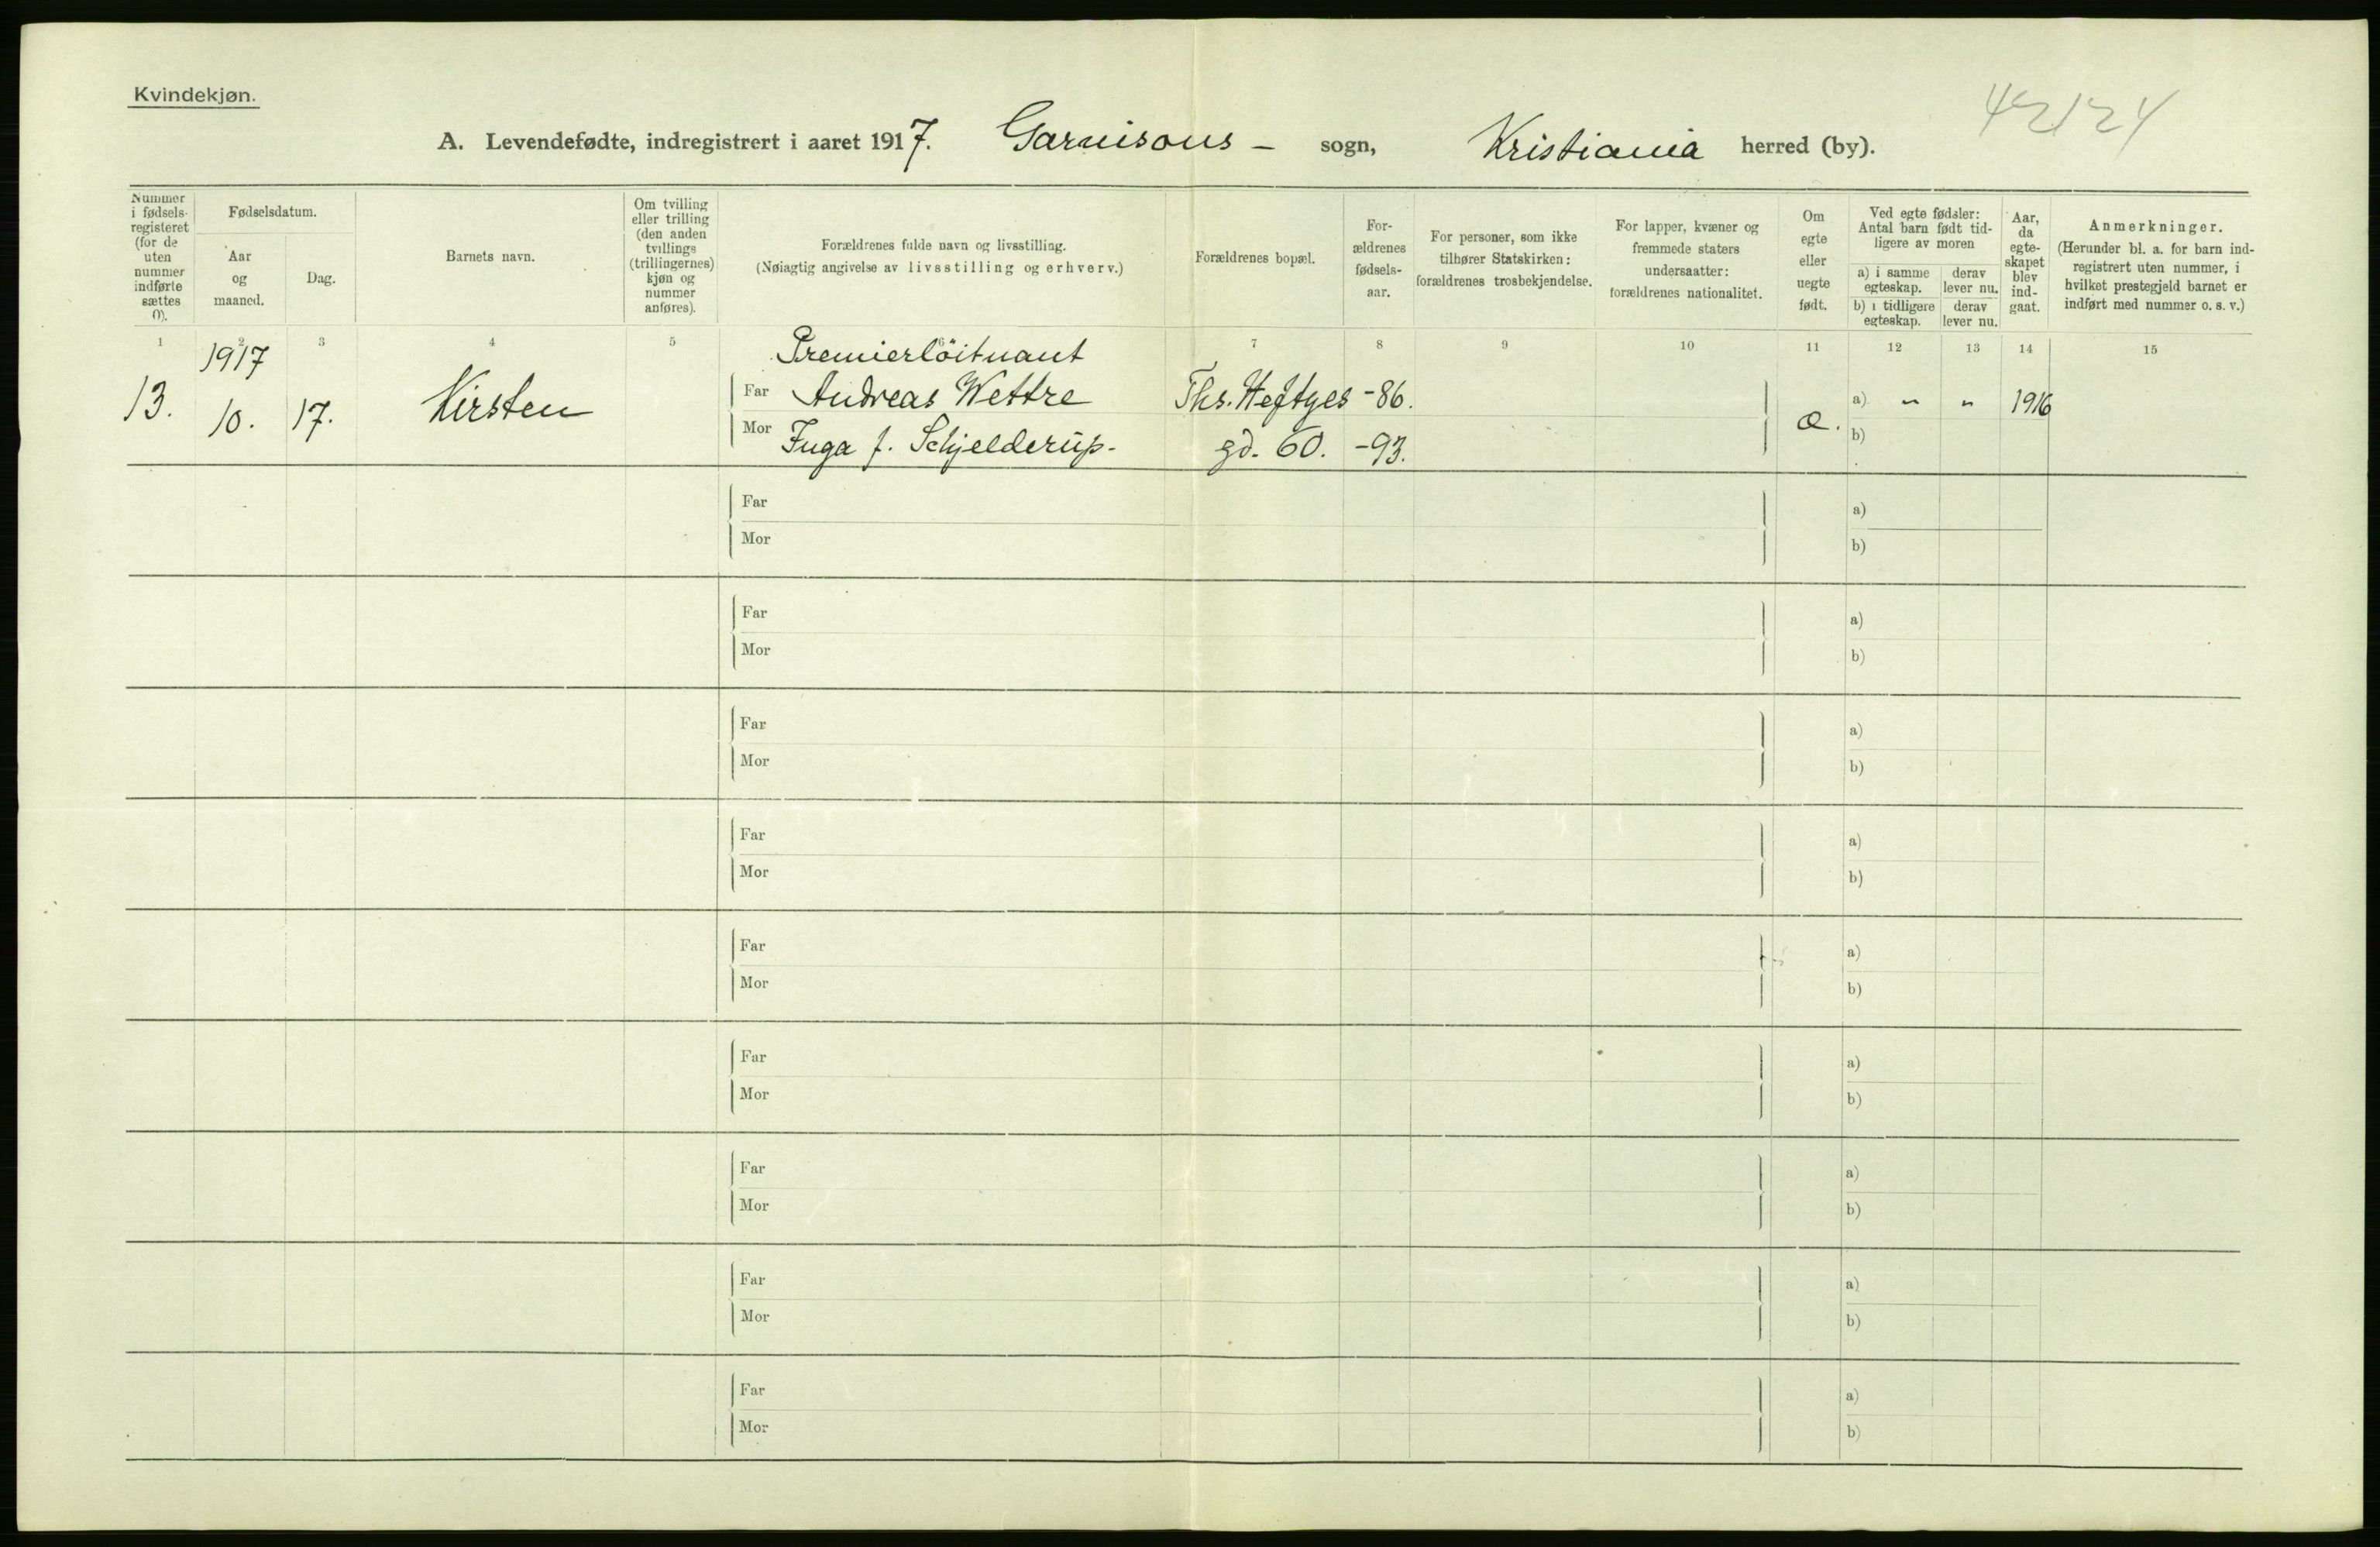 Kvindekjøn.
42124
A. Levendefødte, indregistrert i aaret 1917. Garnisons - sogn, Kristiania herred (by).
Nummer i fødsels-registeret (for de uten nummer indførte sættes 0).
Fødselsdatum.
Aar og maaned.
Dag.
Barnets navn.
Om tvilling eller trilling (den anden tvillings (trillingernes) kjøn og nummer anføres).
Forældrenes fulde navn og livsstilling.
(Nøiagtig angivelse av livsstilling og erhverv.)
Forældrenes bopæl.
For-ældrenes fødsels-aar.
For personer, som ikke tilhører Statskirken: forældrenes trosbekjendelse.
For lapper, kvæner og fremmede staters undersaatter: forældrenes nationalitet.
Om egte eller uegte født.
Ved egte fødsler: Antal barn født tid-ligere av moren
a) i samme egteskap.
derav lever nu.
b) i tidligere egteskap.
derav lever nu.
Aar, da egte-skapet blev ind-gaat.
Anmerkninger.
(Herunder bl. a. for barn ind-registrert uten nummer, i hvilket prestegjeld barnet er indført med nummer o. s. v.)
1 2 3 4 5 6 7 8 9 10 11 12 13 14 15
1917 Premierlöitnant
13. 10. 17. Kirsten Far Andreas Wettre Ths. Heftyes -86. æ. a) " " 1916
Mor Inga f. Schjelderup. gd. 60. -93. b)
Far a)
Mor b)
Far a)
Mor b)
Far a)
Mor b)
Far a)
Mor b)
Far a)
Mor b)
Far a)
Mor b)
Far a)
Mor b)
Far a)
Mor b)
Far a)
Mor b)